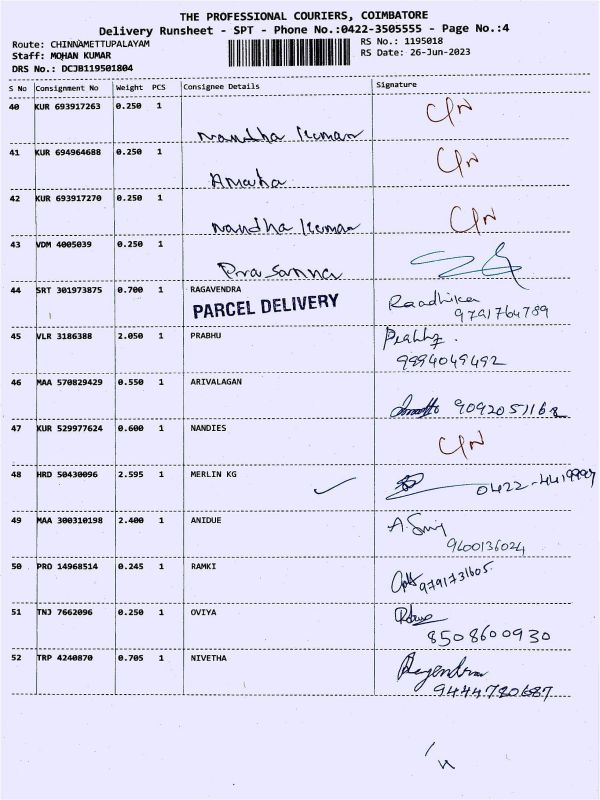 THE PROFESSIONAL COURIERS, COIMBATORE
Delivery Runsheet - SPT - Phone No.:0422-3505555 - Page No.:4
Route: CHINNAMETTUPALAYAM RS No.: 1195018
Staff: MOHAN KUMAR RS Date: 26-Jun-2023
DRS No.: DCJB119501804
S No Consignment No Weight PCS Consignee Details Signature
40 KUR 693917263 0.250 1
Nandha Kumar
41 KUR 694964688 0.250 1
42 KUR 693917270 0.250 1
Nandha Kumar
43 VDM 4005039 0.250 1
Prasanna
44 SRT 301973875 0.700 1 RAGAVENDRA
PARCEL DELIVERY Raadhika
9791764789
45 VLR 3186388 2.050 1 PRABHU
9894049492
46 MAA 570829429 0.550 1 ARIVALAGAN
9092051168
47 KUR 529977624 0.600 1 NANDIES
48 HRD 50430096 2.595 1 MERLIN KG
0422-4419997
49 MAA 300310198 2.400 1 ANIDUE
9600136024
50 PRO 14968514 0.245 1 RAMKI
9791731605
51 TNJ 7662096 0.250 1 OVIYA
8508600930
52 TRP 4240870 0.705 1 NIVETHA
Rajendran
9444720687